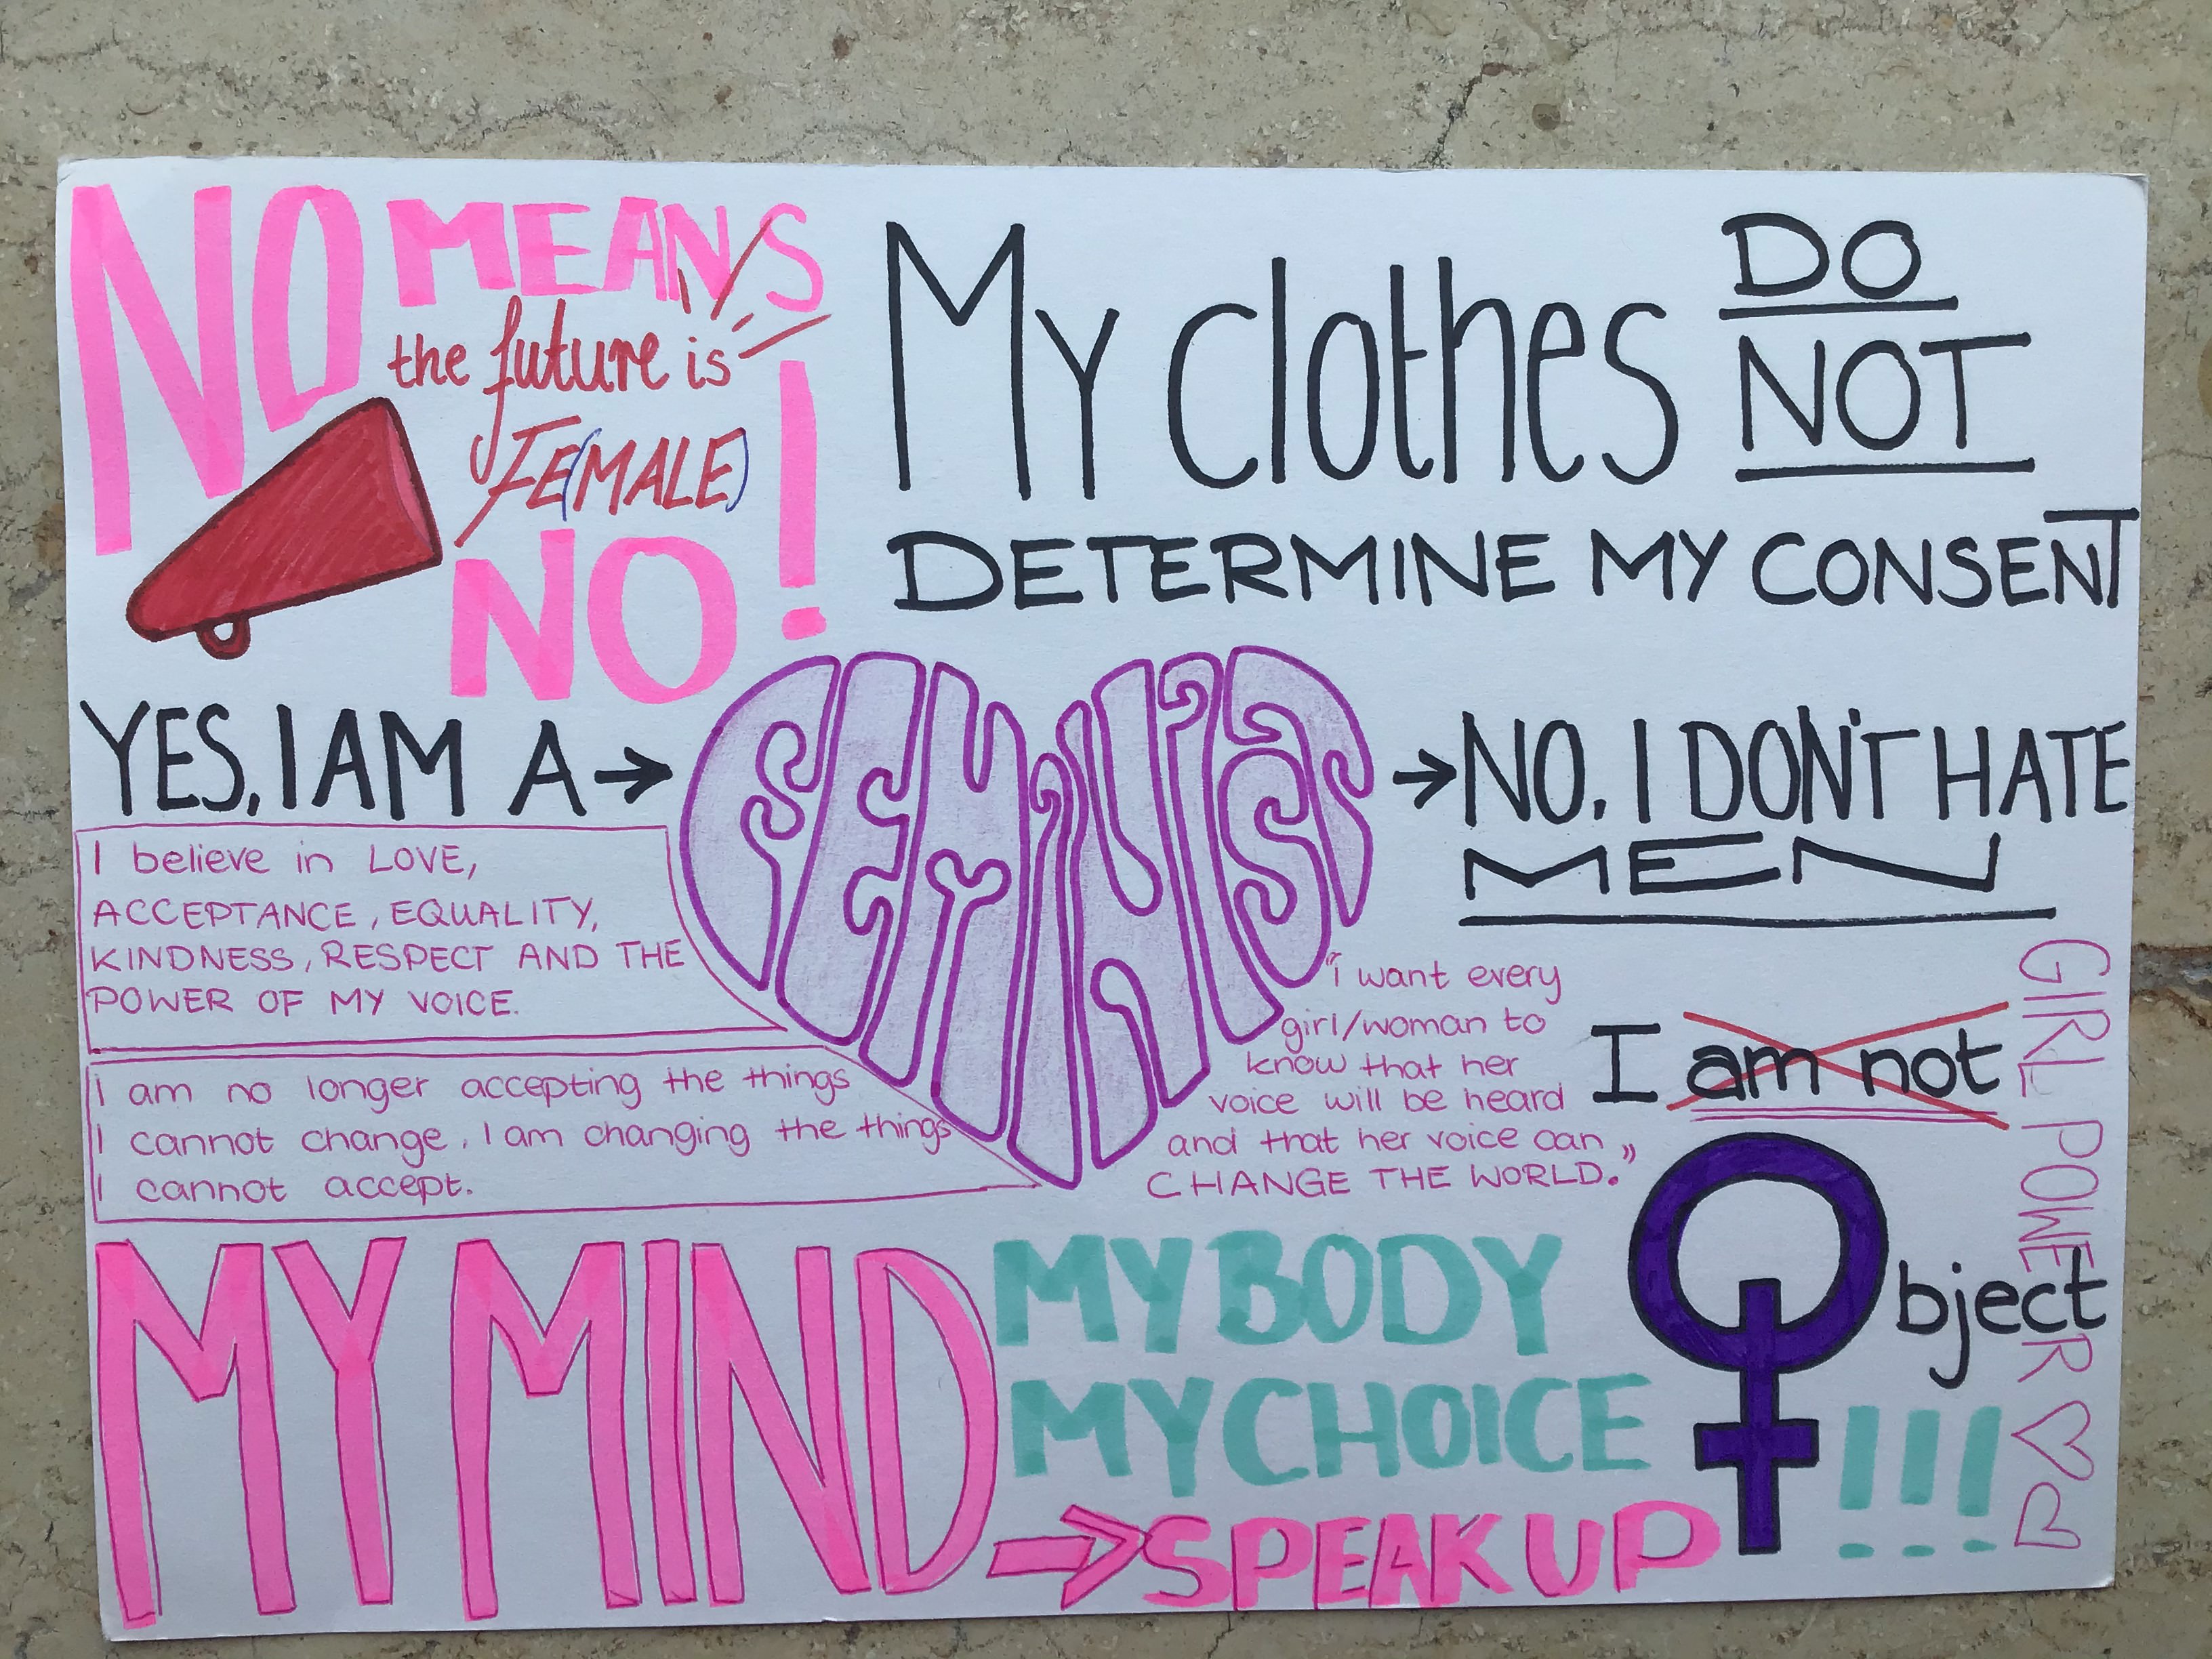 NO MEANS
the future is
FE(MALE)
NO!
My clothes DO
NOT
DETERMINE MY CONSENT
YES, I AM A → FEMINIST → NO. I DON'T HATE
MEN
I believe in LOVE,
ACCEPTANCE, EQUALITY,
KINDNESS, RESPECT AND THE
POWER OF MY VOICE.
I am no longer accepting the things
I cannot change, I am changing the things
I cannot accept.
"i want every
girl/woman to
know that her
voice will be heard
and that her voice can
CHANGE THE WORLD."
I am not
Object
!!!
GIRL POWER ♡♡
MY MIND
MY BODY
MY CHOICE
→ SPEAK UP